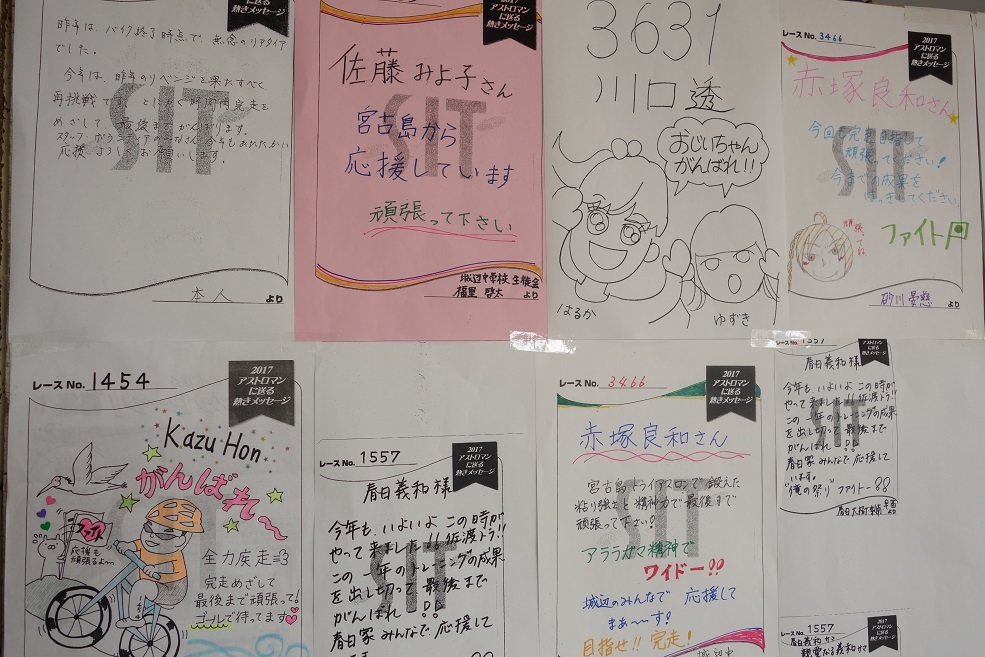 に送る
熱きメッセージ
昨年は、バイク終了時点で、無念のリタイア
でした。
今年は、昨年のリベンジを果たすべく
再挑戦です。とにかく時間内完走を
めざして 最後までがんばります。
スタッフ・ボランティアのみなさん 今年もあたたかい
応援、よろしくお願いします。
SIT
本人 より
2017
アストロマン
に送る
熱きメッセージ
佐藤 みよ子さん
宮古島から
応援しています
頑張って下さい
SIT
城辺中学校 生徒会
福里 啓太 より
3631
川口 透
おじいちゃん
がんばれ!!
はるか
ゆずき
レースNo. 3466
2017
アストロマン
に送る
熱きメッセージ
赤塚良和さん
今回も完走目指して
頑張ってください!
今までの成果を
はっきしてください。
SIT
頑張ってね
ファイト
砂川 より
レースNo. 1454
2017
アストロマン
に送る
熱きメッセージ
Kazu Hon
がんばれ〜
ファイト
応援も
頑張るよ〜
全力疾走=3
完走めざして
最後まで頑張って!
ゴールで待ってます♡
レースNo. 1557
2017
アストロマン
に送る
熱きメッセージ
春日義和様
今年も、いよいよ この時が
やって来ました!! 佐渡トラ!!
この一年のトレーニングの成果
を出し切って 最後まで
がんばれ !!
春日家 みんなで、応援して
SIT
レースNo. 3466
2017
アストロマン
に送る
熱きメッセージ
赤塚良和さん
宮古島トライアスロンで鍛えた
粘り強さと精神力で最後まで
頑張って下さい!
アララガマ精神で
ワイドー!!
城辺のみんなで 応援して
まぁ〜〜す!
目指せ!! 完走!
SIT
城辺中
レースNo. 1557
2017
アストロマン
に送る
熱きメッセージ
春日義和 様
今年も、いよいよ この時が
やって来ました!! 佐渡トラ!!
この一年のトレーニングの成果
を出し切って 最後まで
がんばれ !!
春日家 みんなで、応援して
います。
"俺の祭り" ファイトー!!
SIT
春日大樹 より
レースNo. 1557
2017
アストロマン
に送る
熱きメッセージ
春日義和 サマ
親愛なる義和サマ